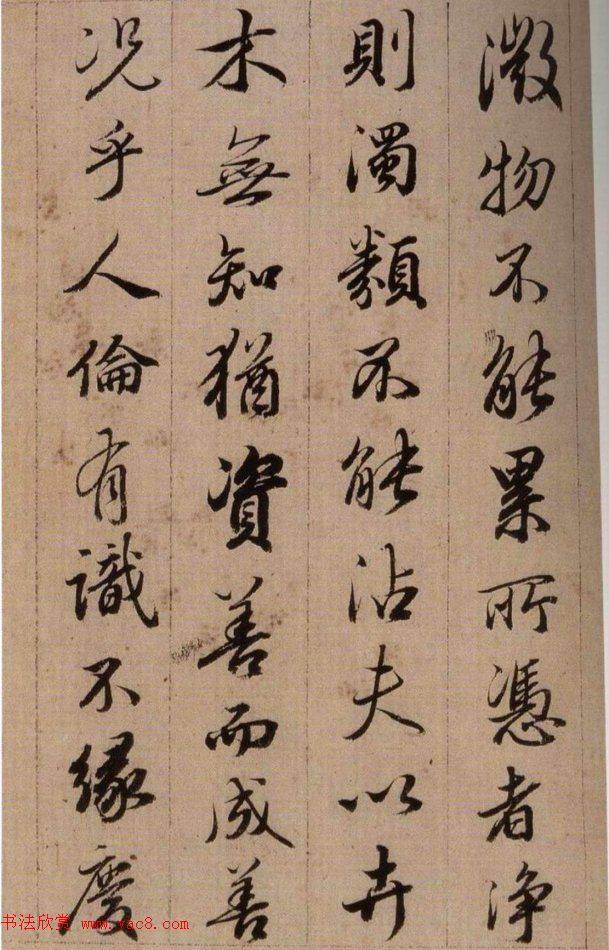 微物不能累所憑者淨
則濁類不能沾夫以卉
木無知猶資善而成善
况乎人倫有識不緣慶
书法欣赏 www.yac8.com